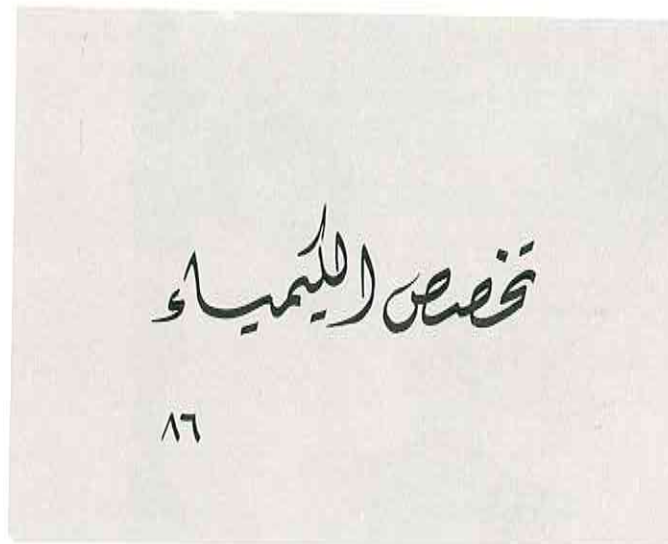 تخصص الكيمياء
٨٦